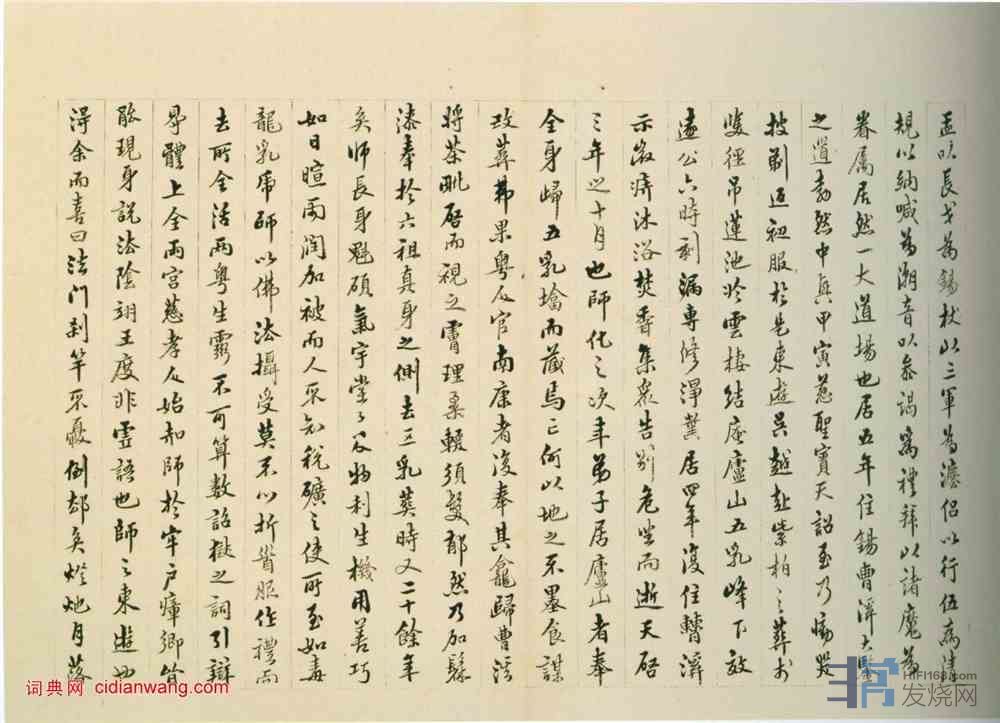 孟以長戈為錫杖以三軍為法侶以行伍為清
規以納喊為潮音以參謁為禮拜以諸魔為
眷屬居然一大道場也居五年住錫曹溪大鑒
之道勃然中興甲寅慈聖賓天詔至乃慟哭
披剃返初服於是東遊吳越赴紫柏之葬於
雙徑吊蓮池於雲棲結庵廬山五乳峰下效
遠公六時刻漏專修淨業居四年復住曹溪
示微疾沐浴焚香集衆告別危坐而逝天啓
三年之十月也師化之次年弟子居廬山者奉
全身歸五乳塔而藏焉亡何以地之不墨食謀
改葬弗果粵人官南康者復奉其龕歸曹溪
將茶毗啓而視之膚理柔軟須髮郁然乃加髹
漆奉於六祖真身之側去五乳葬時又二十餘年
矣師長身魁碩氣宇堂堂及物利生機用善巧
如日暄雨潤加被而人不知稅礦之使所至如毒
龍乳虎師以佛法攝受莫不心折皆服作禮而
去所全活兩粵生靈不可算數詔獄之詞引辯
舉體上全兩宮慈孝人始知師於牢戶瘴鄉皆
能現身説法陰翊王度非虛語也師之東遊也
得余而喜曰法門刹竿不憂倒却矣燈灺月落
词典网 cidianwang.com
HIFI168.com
发烧网